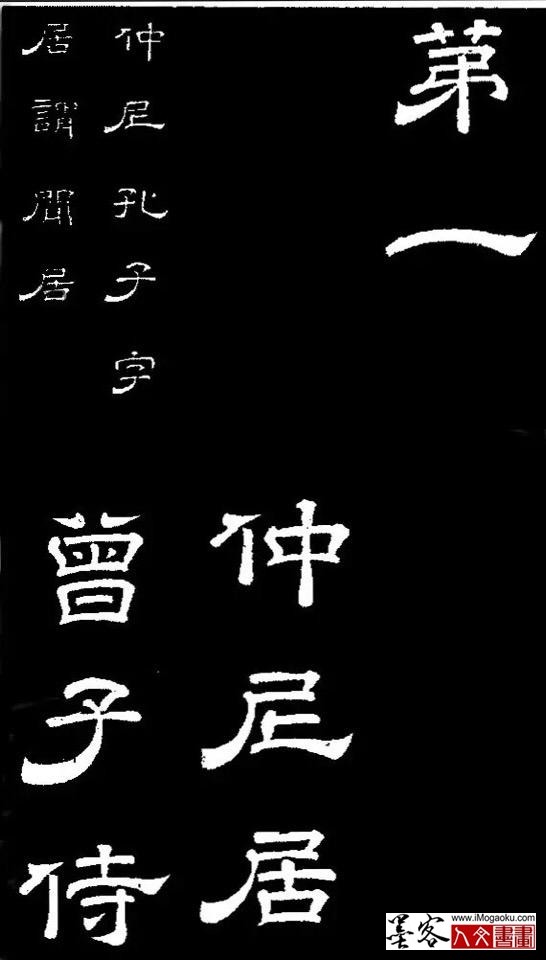 苐一
仲尼居
仲尼孔子字
居謂閒居
曾子侍
www.iMogaoku.com
墨客
人文書畫